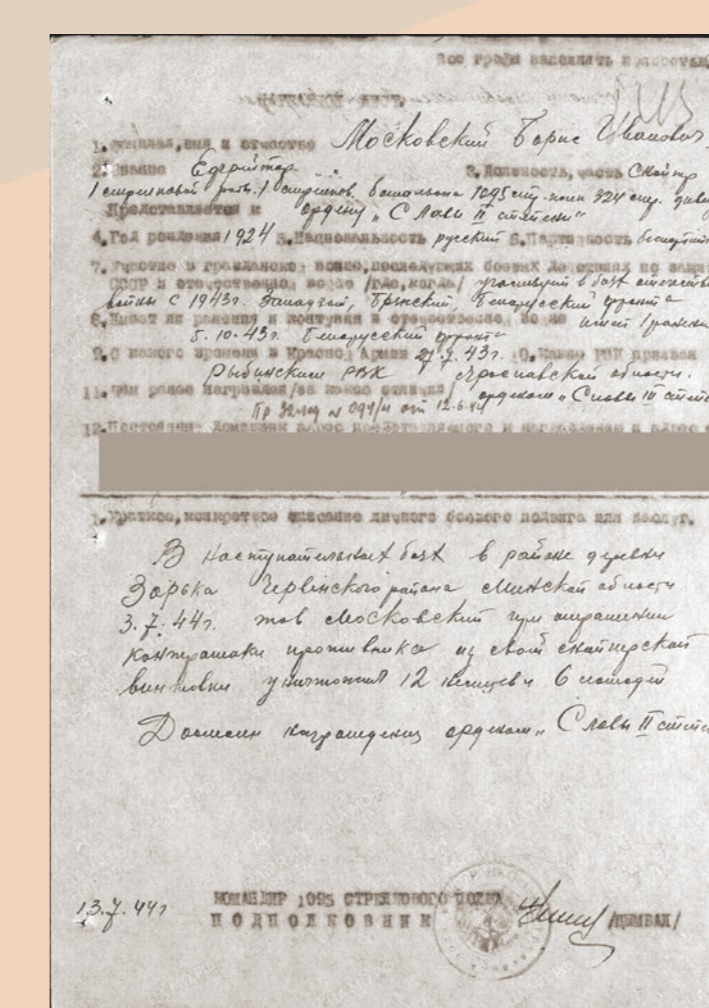 Все графы заполнять
1. Фамилия, имя и отчество Московский Борис Иванович
2. Звание Ефрейтор 3. Должность, часть Снайпер
1 стрелковой роты 1 стрелков. батальона 1095 стр. полка 324 стр. диви
Представляется к ордену „Славы II степени"
4. Год рождения 1924 5. Национальность русский 6. Партийность беспартий
7. Участие в гражданской войне, последующих боевых действиях по защи
СССР и отечественной войне /где, когда/ участвует в боях отечеств
войны с 1943г. Западный, Брянский, Белорусский фронта
8. Имеет ли ранения и контузии в отечественной войне имеет 1 ранени
5.10.43г. Белорусский фронт
9. С какого времени в Красной Армии 27.2.43г. 10. Каким РВК призван
Рыбинским РВК Ярославской области.
11. Чем ранее награжден /за какие отличия/ орденом „Славы III степе
Пр 324 сд № 091/н от 12.6.44
12. Постоянный домашний адрес представляемого к награждению и адрес
1. Краткое, конкретное описание личного боевого подвига или заслуг.
В наступательных боях в районе деревни
Зорька Червенского района Минской области
3.7.44г. тов Московский при отражении
контратаки противника из свой снайперской
винтовки уничтожил 12 немцев и 6 лошадей
Достоин награждения орденом „Славы II степе
13.7.44г КОМАНДИР 1095 СТРЕЛКОВОГО ПОЛКА
ПОДПОЛКОВНИК /ЦЫМБАЛ/